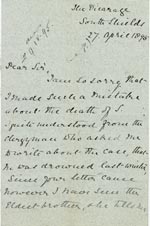 The Vicarage
South Shields
17 April 1895
9.15.95
Dear Sir,
I am so sorry that
I made such a mistake
about the death of S.
I quite understood from the
clergyman who asked me
to write about the case, that
he was drowned last winter
Since your letter came
however I have seen the
Eldest brother, & he tells me